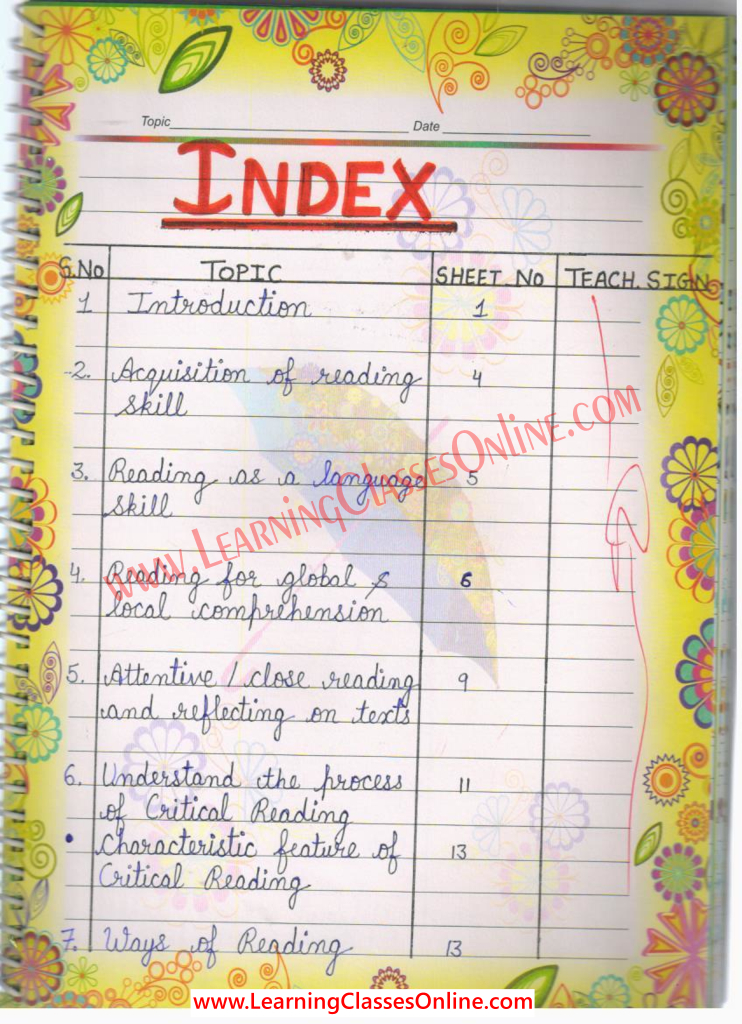 Topic Date
INDEX
S.No TOPIC SHEET NO TEACH. SIGN
1 Introduction 1
2. Acquisition of reading 4
skill
3. Reading as a language 5
skill
4. Reading for global & 6
local comprehension
5. Attentive / close reading 9
and reflecting on texts
6. Understand the process 11
of Critical Reading
• Characteristic feature of 13
Critical Reading
7. Ways of Reading 13
www.LearningClassesOnline.com
www.LearningClassesOnline.com